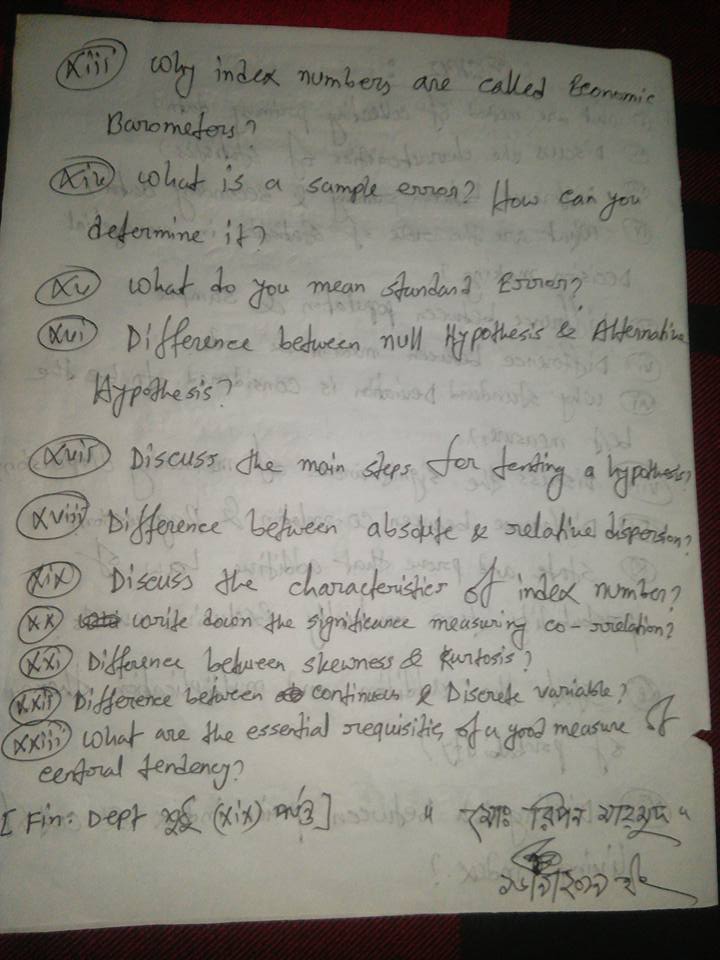 xiii Why index numbers are called Economic
Barometers?
xiv What is a sample error? How can you
determine it?
xv What do you mean standard Error?
xvi Difference between null Hypothesis & Alternative
Hypothesis?
xvii Discuss the main steps for testing a hypothesis?
xviii Difference between absolute & relative dispersion?
xix Discuss the characteristics of index number?
xx write down the significance measuring co-rrelation?
xxi Difference between skewness & Kurtosis?
xxii Difference between continuous & Discrete variable?
xxiii What are the essential requisities of a good measure of
central tendency?
[Fin: Dept শুধু (xix) পর্যন্ত] " মোঃ রিপন মাহমুদ "